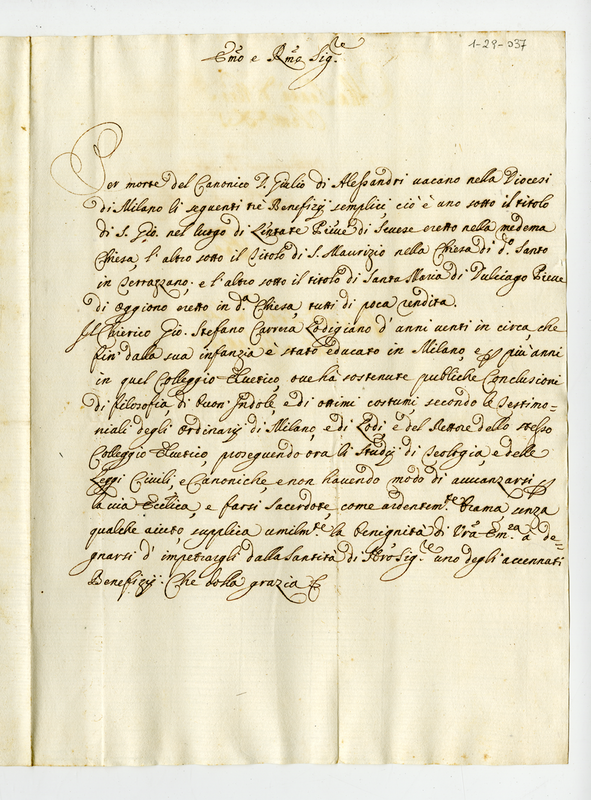 1-29-037
Emo e Rmo Sig.re
Per morte del Canonico D. Giulio di Alessandri vacano nella Diocesi
di Milano li seguenti tre Benefizij semplici, cio è uno sotto il titolo
di S. Gio. nel luogo di Lentate Pieve di Seveso eretto nella medema
Chiesa, l'altro sotto il Titolo di S. Maurizio nella Chiesa di d.o Santo
in Terrazzano, e l'altro sotto il titolo di Santa Maria di Dulciago Pieve
di Oggiono eretto in d.a Chiesa, tutti di poca rendita.
Il Chierico Gio. Stefano Carcia Lodigiano d'anni venti in circa, che
fin' dalla sua infanzia è stato educato in Milano, e p più anni
in quel Colleggio Elvetico, ove hà sostenute publiche Conclusioni
di filosofia di buon' Indole, e di ottimi costumi, secondo le Testimo=
niali degli Ordinarij di Milano, e di Lodi e del Rettore dello stesso
Colleggio Elvetico, proseguendo ora li Studij di Teologia, e delle
Leggi Civili, e Canoniche, e non havendo modo di avvanzarsi p
la via Eccl.ica, e farsi Sacerdote, come ardentem.te brama senza
qualche aiuto, supplica umilm.te la benignità di Vra Em.za à de=
gnarsi d'impetrargli dalla Santità di Nro Sig.re uno degli accennati
Benefizij. Che della grazia &